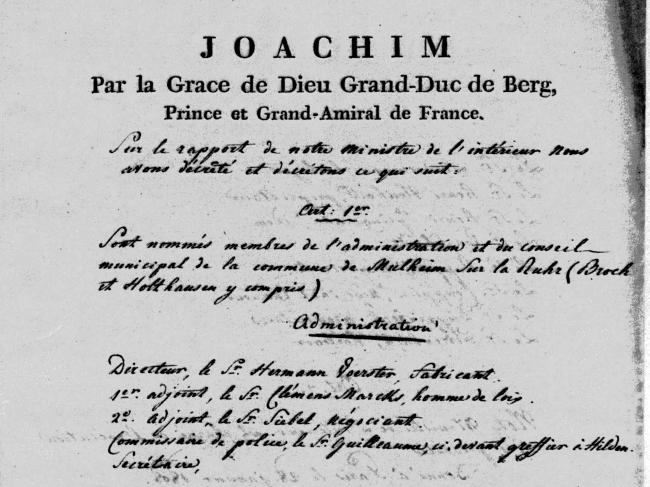 JOACHIM
Par la Grace de Dieu Grand-Duc de Berg,
Prince et Grand-Amiral de France.
Sur le rapport de notre ministre de l'intérieur nous
avons décrété et décrétons ce qui suit:
Art: 1er.
Sont nommés membres de l'administration et du conseil
municipal de la commune de Mulheim sur la Ruhr (Broch
et Holthausen y compris)
Administration
Directeur, le Sr. Hermann Voerster, fabricant.
1er. adjoint, le Sr. Clémens Marcks, homme de lois
2d. adjoint, le Sr. Siebel, négociant
Commissaire de police, le Sr. Guilleaume, ci-devant greffier à Hilden.
Secrétaire,